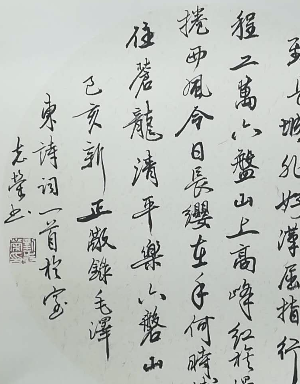 到长城非好漢屈指行
程二萬六盤山上高峰紅旗
捲西風今日長纓在手何時
住蒼龍清平樂六盤山
己亥新正敬錄毛澤
東詩詞一首於
志榮书